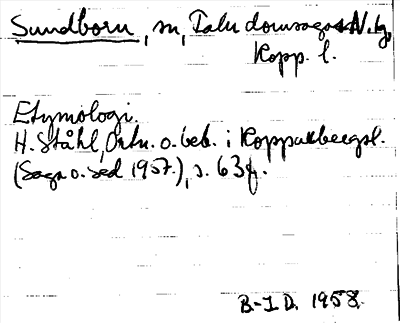 Sundborn, sn, Falu domsagas N. tg,
Kopp. l.
Etymologi.
H. Ståhl, Ortn. o. beb. i Kopparbergsl.
(Saga o. sed 1957.), s. 63f.
B.-I D. 1958.